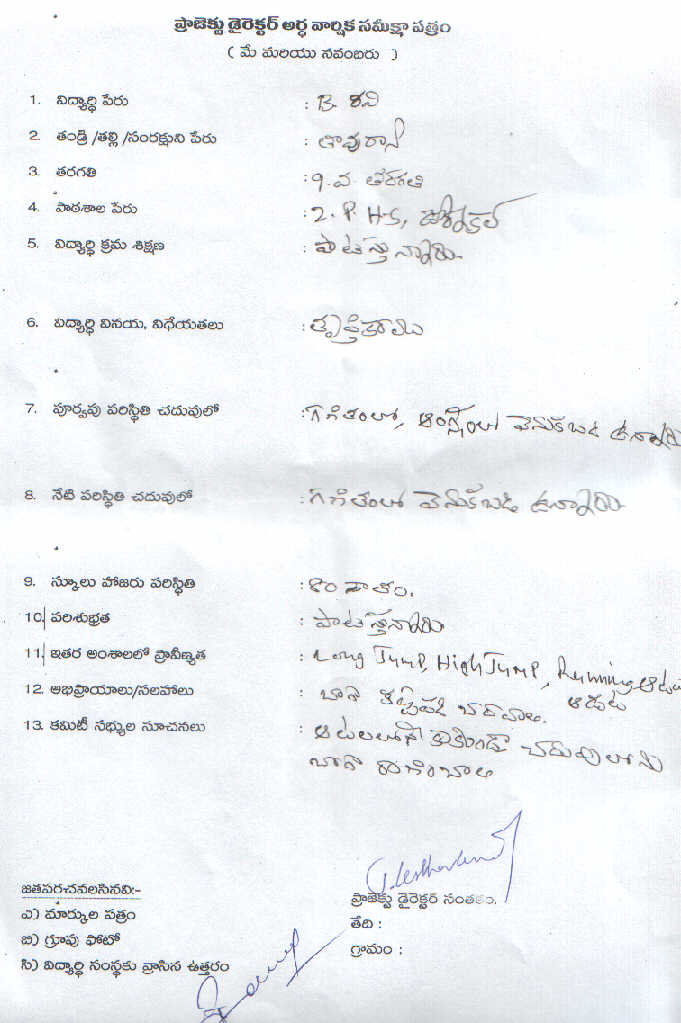 ప్రాజెక్టు డైరెక్టర్ అర్ధ వార్షిక సమీక్షా పత్రం
( మే మరియు నవంబరు )
1. విద్యార్థి పేరు : B. రవి
2. తండ్రి /తల్లి /సంరక్షుని పేరు :
3. తరగతి : 9.వ తరగతి
4. పాఠశాల పేరు : Z. P. H.S,
5. విద్యార్థి క్రమ శిక్షణ : పాటిస్తున్నాడు.
6. విద్యార్థి వినయ, విధేయతలు : తృప్తికరము
7. పూర్వపు పరిస్థితి చదువులో : గణితంలో, ఆంగ్లంలో వెనుకబడి ఉన్నాడు
8. నేటి పరిస్థితి చదువులో : గణితంలో వెనుకబడి ఉన్నాడు.
9. స్కూలు హాజరు పరిస్థితి : 80 శాతం.
10. పరిశుభ్రత : పాటిస్తున్నాడు
11. ఇతర అంశాలలో ప్రావీణ్యత : Long Jump, High Jump, Running ఆటలు
12. అభిప్రాయాలు/సలహాలు : బాగా కష్టపడి చదవాలి.
13. కమిటీ సభ్యుల సూచనలు : ఆటలలోనే కాకుండా చదువులోను
బాగా రాణించాలి
జతపరచవలసినవి:-
ఎ) మార్కుల పత్రం
బి) గ్రూపు ఫోటో
సి) విద్యార్థి సంస్థకు వ్రాసిన ఉత్తరం
ప్రాజెక్టు డైరెక్టర్ సంతకం.
తేది :
గ్రామం :